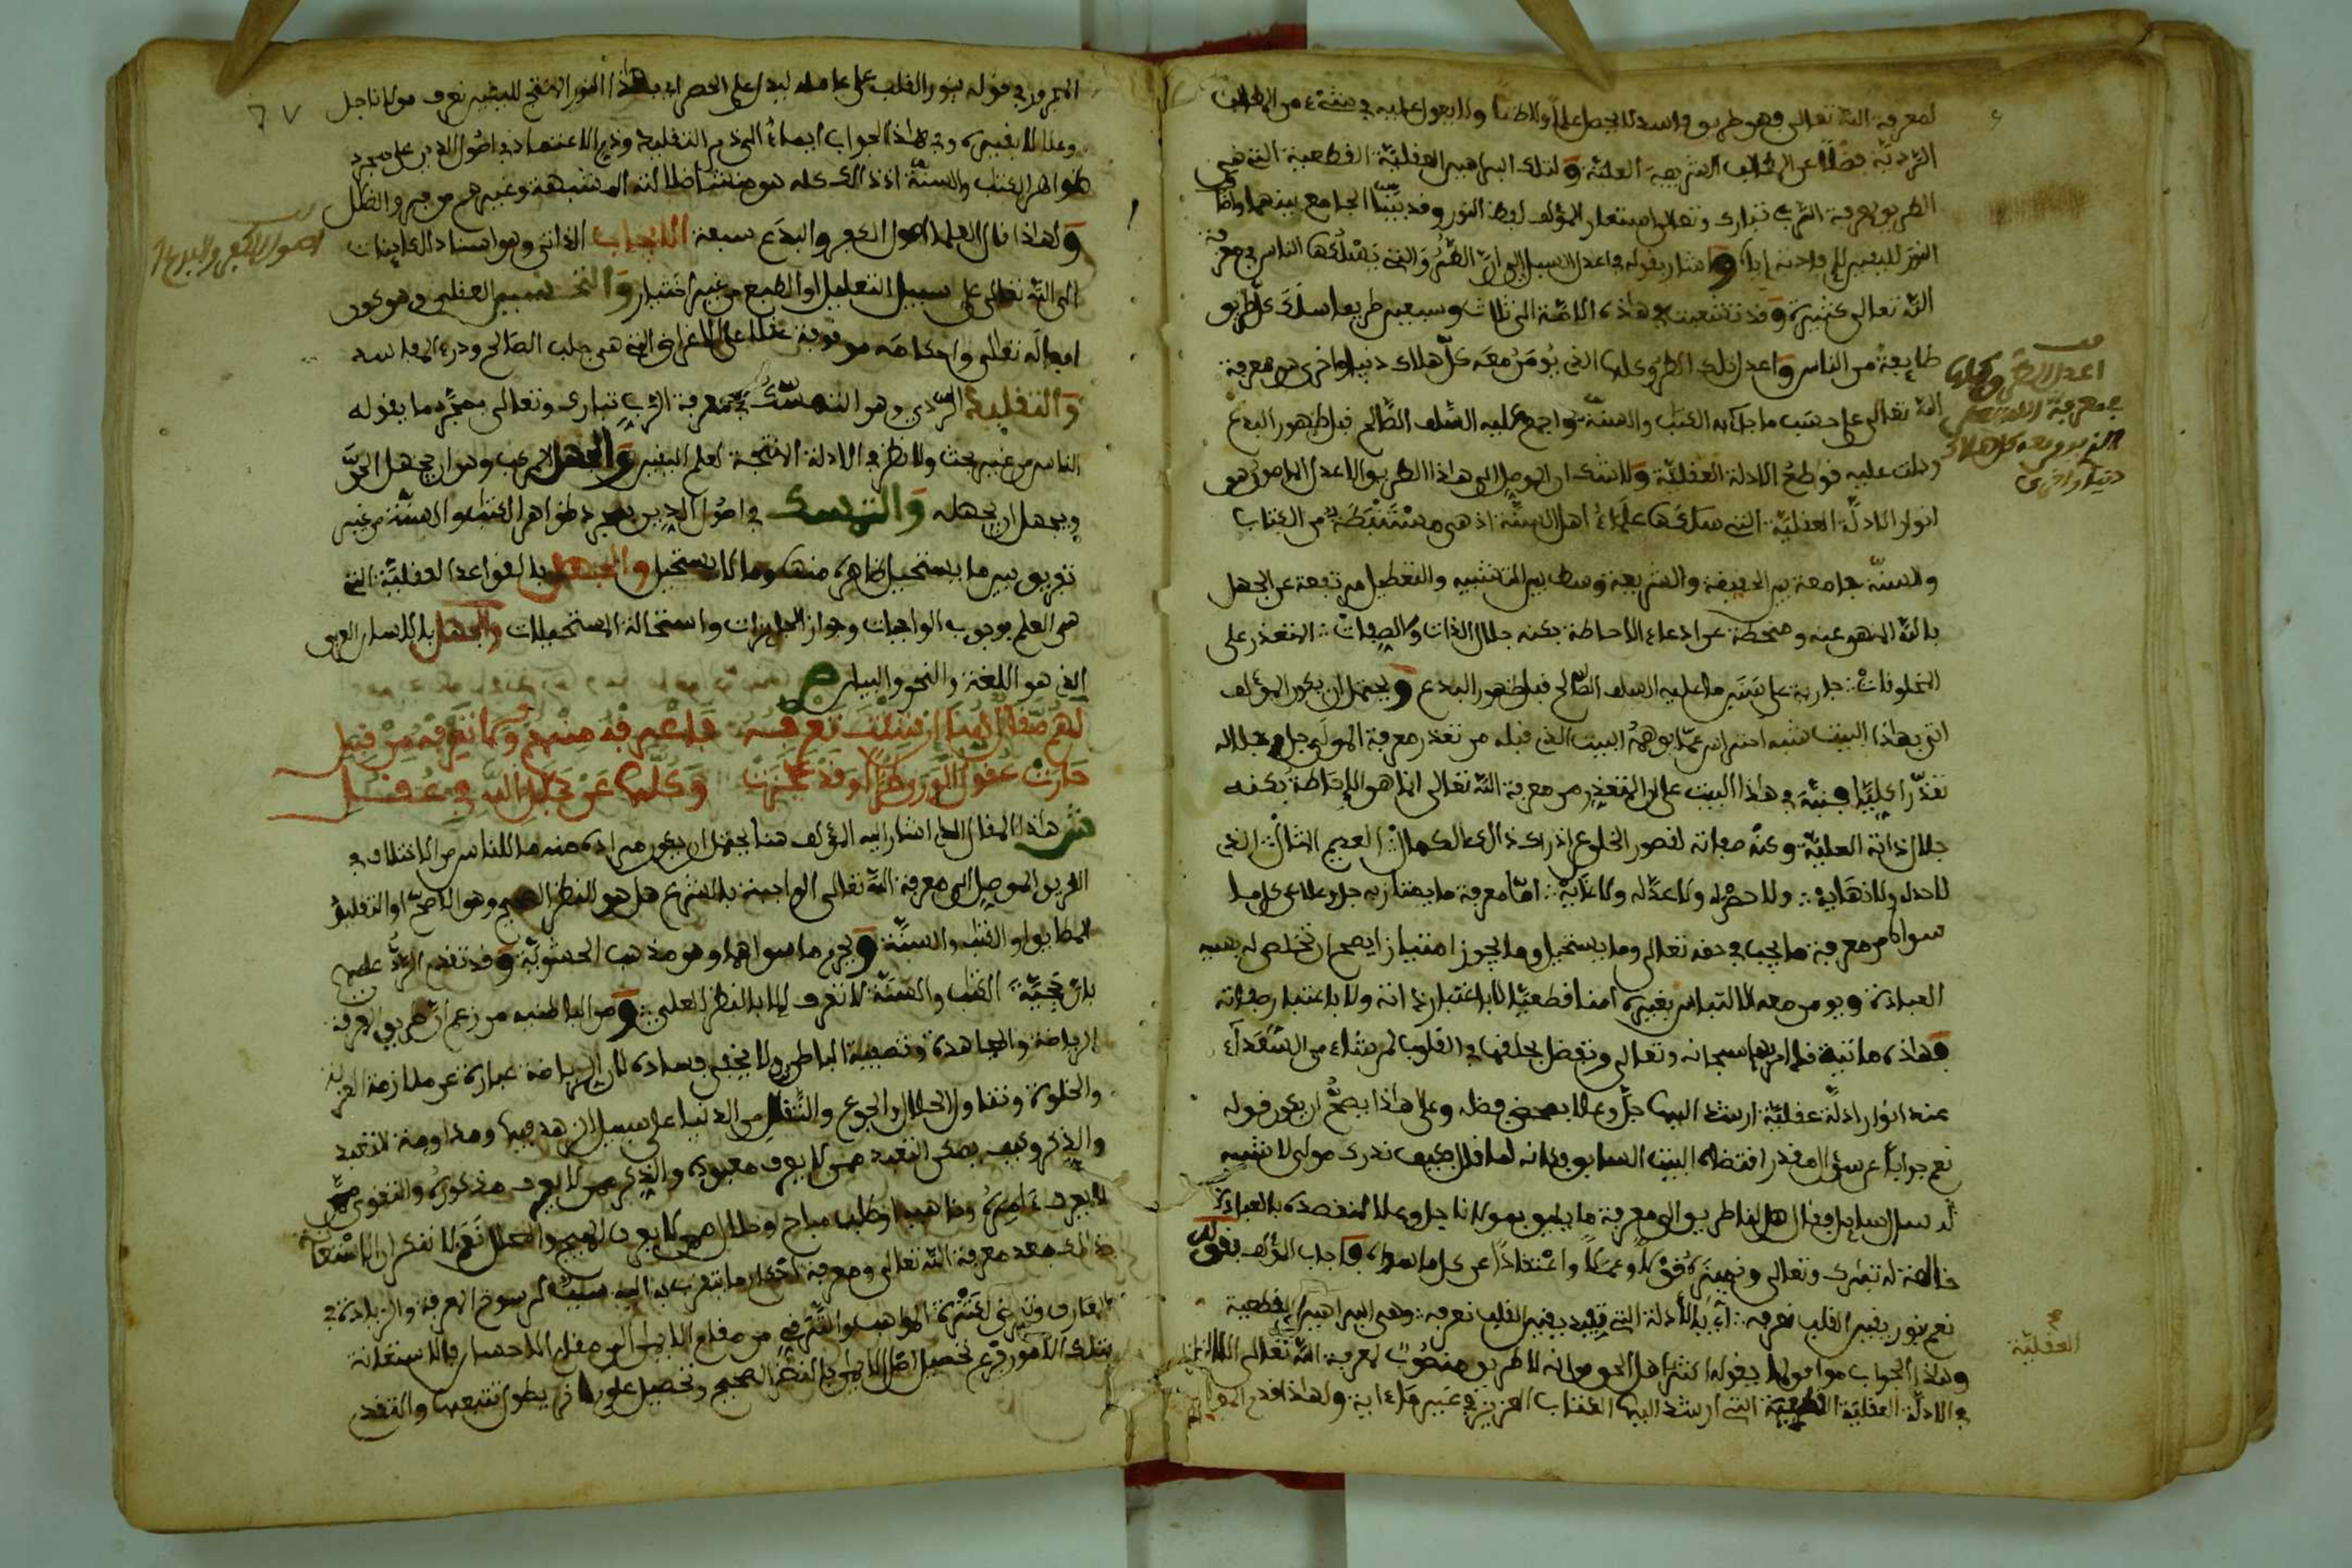 لمعرفة الله تعالى فهو طريق فاسد لا يحصل علما ولا ظنا ولا يعول عليه في شيء من المطالب
الردية فضلا عن المطالب الشريفة العلية وتلك البراهين العقلية القطعية التي هي
الطريق لمعرفة الرب تبارك وتعالى استعار المؤلف لفظ النور وقد بينا الجامع بينهما واضا
النور لليقين لإفادته إياه وأشار بقوله فاعدل السبل إلى أن الطرق التي يسلكها الناس في معرفة
الله تعالى كثيرة وقد تشعبت في هذه الأمة إلى ثلاث وسبعين طريقا سلك كل طريق
طائفة من الناس وأعدل تلك الطرق كلها الذي يومن معه كل هلاك دنيا وأخرى هو معرفة
الله تعالى على حسب ما جاء به الكتاب والسنة وأجمع عليه السلف الصالح قبل ظهور البدع
ودلت عليه قواطع الأدلة العقلية ولا شك أن الموصل إلى هذا الطريق الأعدل المامون هو
أنوار الأدلة العقلية التي سلكها علماء أهل السنة إذ هي مستنبطة من الكتاب
والسنة جامعة بين الحقيقة والشريعة وسط بين التشبيه والتعطيل مرتفعة عن الجهل
بالله المنهي عنه ومنحطة عن ادعاء الإحاطة بكنه جلال الذات والصفات المتعذر على
المخلوقات جارية على سنن ما عليه السلف الصالح قبل ظهور البدع ويحتمل أن يكون المؤلف
أتى بهذا البيت شبه احتراس عما يوهمه البيت الذي قبله من تعذر معرفة المولى جل جلاله
تعذرا كليا فنبه في هذا البيت على أن المتعذر من معرفة الله تعالى إنما هو الإحاطة بكنه
جلال ذاته العلية وكنه صفاته لقصور الخلق عن إدراك ذلك الكمال العديم المثال الذي
لا حد له ولا نهاية ولا حصر له ولا عد له ولا غاية أما معرفة ما يمتاز به جل وعلا عن كل ما
سواه من معرفة ما يجب في حقه تعالى وما يستحيل وما يجوز امتيازا يصح أن تخلص له بسببه
العبادة ويومن معه الالتباس بغيره امنا قطعيا لا باعتبار ذاته ولا باعتبار صفاته
فهذه مرتبة قد أمر بها سبحانه وتعالى وتفضل بخلقها في القلوب لمن شاء من السعداء
عند أنوار أدلة عقلية أرشد إليها جل وعلا بمحض فضله وعلى هذا يصح أن يكون قوله
نعم جوابا عن سؤال مقدر اقتضاه البيت السابق فكأنه لما قال فكيف تدرك مولى لا شبيه
له سأل سائل فقال هل لنا طريق إلى معرفة ما يليق بمولانا جل وعلا لنقصده بالعبادة
خالصة له تبارك وتعالى ونميزه قولا وعملا واعتقادا عن كل ما سواه فأجاب المؤلف بقوله
نعم بنور يقين القلب نعرفه أي بالأدلة التي تفيد يقين القلب نعرفه وهي البراهين القطعية
وهذا الجواب موافق لما يقوله أكثر أهل الحق من أنه لا طريق منصوب لمعرفة الله تعالى إلا
في الأدلة العقلية القطعية التي أرشد إليها الكتاب العزيز في غير ما آية ولهذا قدم المولف
أعدل الطرق وكلها
معرفة الله تعالى
الذي يومن معه كل هلاك
دنيا وأخرى
العقلية
٦٧
المجرور في قوله بنور القلب على عامله ليدل على الحصر أي بهذا النور الأنتج لليقين نعرف مولانا جل
وعلا لا بغيره وفي هذا الجواب إيماء إلى ذم التقليد وذم الاعتماد في أصول الدين على مجرد
ظواهر الكتاب والسنة إذ ذلك كله هو منشأ ضلالة المشبهة وغيرهم من فرق الضلال
ولهذا قال العلماء أصول الكفر والبدع سبعة الإيجاب الذاتي وهو إسناد الكاينات
إلى الله تعالى على سبيل التعليل أو الطبع من غير اختيار والتحسين العقلي وهو كون
أفعاله تعالى وأحكامه موقوفة عقلا على الأغراض التي هي جلب المصالح ودرء المفاسد
والتقليد الردي وهو التمسك في معرفة الرب تبارك وتعالى بمجرد ما يقوله
الناس من غير بحث ولا نظر في الأدلة المنتجة لعلم اليقين والجهل المركب وهو أن يجهل الحق
ويجهل أن يجهله والتمسك في أصول الدين بمجرد ظواهر الكتاب والسنة من غير
تفريق بين ما يستحيل ظاهره منها وما لا يستحيل والجهل بالقواعد العقلية التي
هي العلم بوجوب الواجبات وجواز الجايزات واستحالة المستحيلات والجهل باللسان العربي
الذي هو اللغة والنحو والبيان ص
لهم مقال إذا ان شئت تعرفه فاعرفه منهم وكم تعرفه من قبل
حارت عقول الورى طرا وقد عجزت وكلها عن جلال الله في عقل
ش هذا المقال الذي أشار إليه المؤلف هنا يحتمل أن يكون مراده منه ما للناس من الاختلاف في
الطريق الموصل إلى معرفة الله تعالى الواجبة بالشرع هل هو النظر الصحيح وهو الأصح أو التقليد
المطابق أو الكتاب والسنة ويحرم ما سواهما وهو مذهب الحشوية وقد تقدم الرد عليهم
بأن حجية الكتاب والسنة لا تعرف إلا بالنظر العقلي ومن الباطنية من زعم أن طريق المعرفة
الرياضة والمجاهدة وتصفية الباطن ولا يخفى فساده لأن الرياضة عبارة عن ملازمة العزلة
والخلوة وتناول الحلال والجوع والتقلل من الدنيا على سبيل الزهد فيها ومداومة التعبد
والذكر وكيف يمكن التعبد ممن لا يعرف معبوده والذكر ممن لا يعرف مذكوره والتقوى ممن
لا يعرف آمره وناهيه وطلب مباح وحلال ممن لا يعرف المبيح والمحلل نعم لا ننكر أن الاشتغال
بذلك بعد معرفة الله تعالى ومعرفة أحكام ما يتقرب به إليه سبب لرسوخ المعرفة والزيادة في
المعارف وترقي لكثرة المواهب والترقي من مقام الإيمان إلى مقام الإحسان فالاستعانة
بتلك الأمور فرع تحصيل أصل الإيمان بالنظر الصحيح وتحصيل علوم أخر يطول تتبعها والتقدم
أصول الكفر والبدع